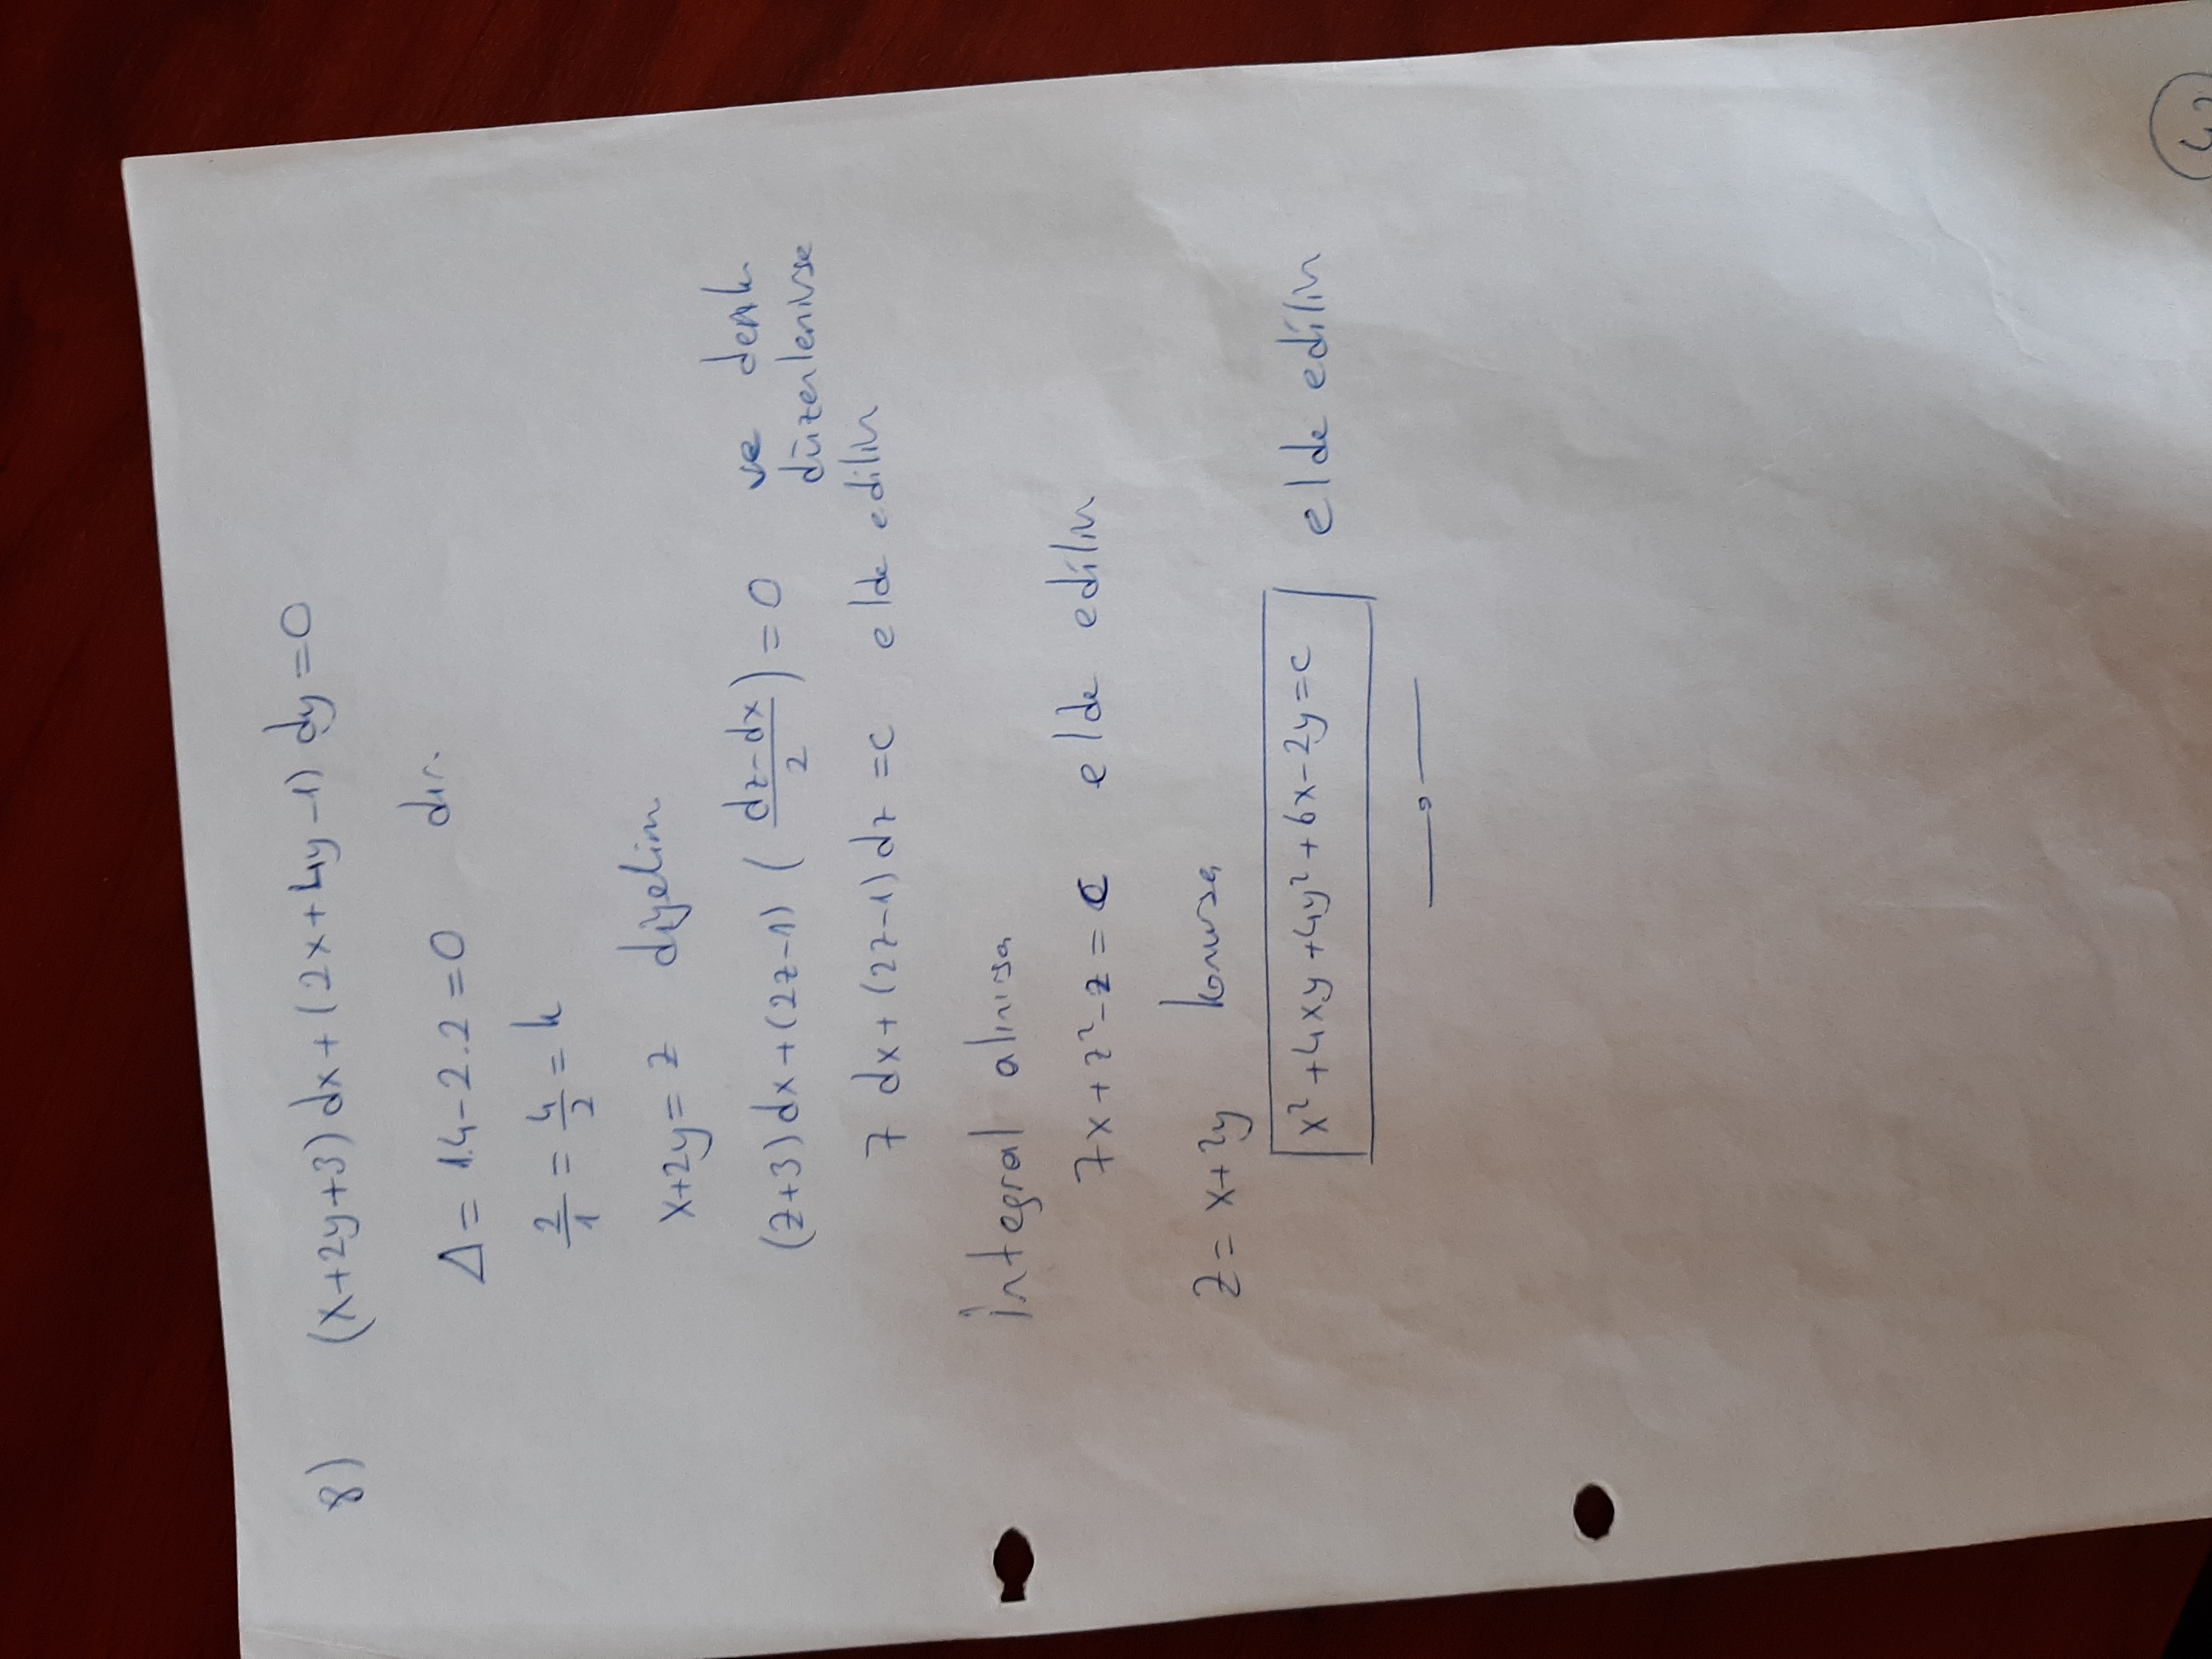 8) (x+2y+3) dx + (2x+4y-1) dy = 0
Δ = 1.4-2.2 = 0 dır.
2/1 = 4/2 = k
x+2y = z diyelim
(z+3) dx + (2z-1) ( dz-dx / 2 ) = 0 ve denk.
düzenlenirse
7 dx + (2z-1) dz = c elde edilir
İntegral alınırsa
7x + z² - z = c elde edilir
z = x+2y konursa
x² + 4xy + 4y² + 6x - 2y = c elde edilir